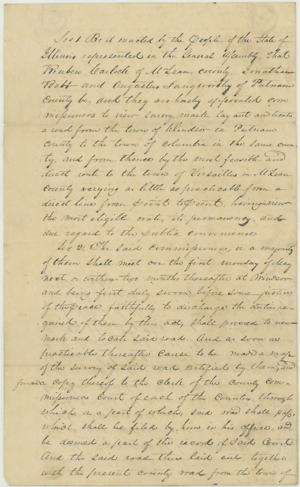 Sec 1 Be it enacted by the People of the State of
Illinois represented in the General Assembly, That
Reuben Carlock of McLean county, Jonathan
Babb and Augustus Langworthy of Putnam
County be, and they are hereby appointed com
missioners to view, survey, mark, lay out and locate
a road from the town of Windsor in Putnam
county to the town of Columbia in the same coun
ty, and from thence by the most feasible and
direct route to the town of Versailles in McLean
County varying as little as practicable from a
direct line from point to point, having in view
the most eligible route, its permanency, and
due regard to the public convenience
Sec 2. The said commissioners, or a majority
of them shall meet on the first monday of May
next or within two months thereafter at Windsor
and being first duly sworn before some justice
of the peace faithfully to discharge the duties re
quired of them by this act, shall proceed to view
mark and locate said road. And as soon as
practicable thereafter cause to be made a map
of the survey of said road certified by them and
a copy thereof to the Clerk of the County Com
missioners Court of each of the Counties through
which is a part of which, said road shall pass,
which shall be filed by him in his office, and
be deemed a part of the record of said Court
And the said road thus laid out, together
with the present county road from the town of